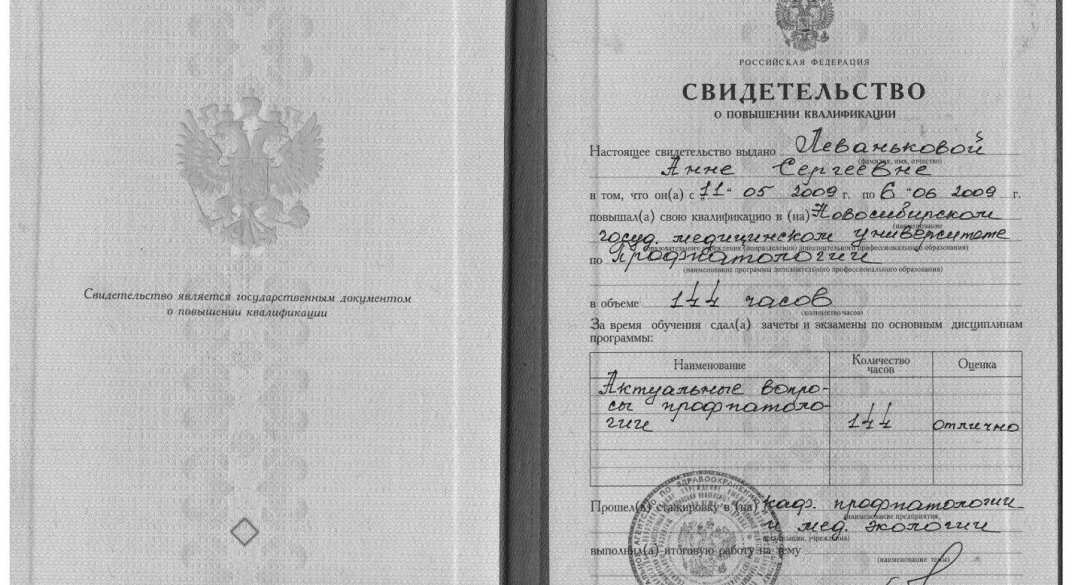 Свидетельство является государственным документом
о повышении квалификации
РОССИЙСКАЯ ФЕДЕРАЦИЯ
СВИДЕТЕЛЬСТВО
О ПОВЫШЕНИИ КВАЛИФИКАЦИИ
Настоящее свидетельство выдано Леваньковой
(фамилия, имя, отчество)
Анне Сергеевне
в том, что он(а) с „11“ 05 2009 г. по 6 “ 06 2009 г.
повышал(а) свою квалификацию в (на) Новосибирском
(наименование
госуд. медицинском университете
образовательного учреждения (подразделения) дополнительного профессионального образования)
по Профпатологии
(наименование программы дополнительного профессионального образования)
в объеме 144 часов
(количество часов)
За время обучения сдал(а) зачеты и экзамены по основным дисциплинам
программы:
Наименование Количество часов Оценка
Актуальные вопро-
сы профпатоло-
гии 144 отлично
Прошел(а) стажировку в (на) каф. профпатологии
(наименование предприятия,
и мед. экологии
организации, учреждения)
выполнил(а) итоговую работу на тему
(наименование темы)